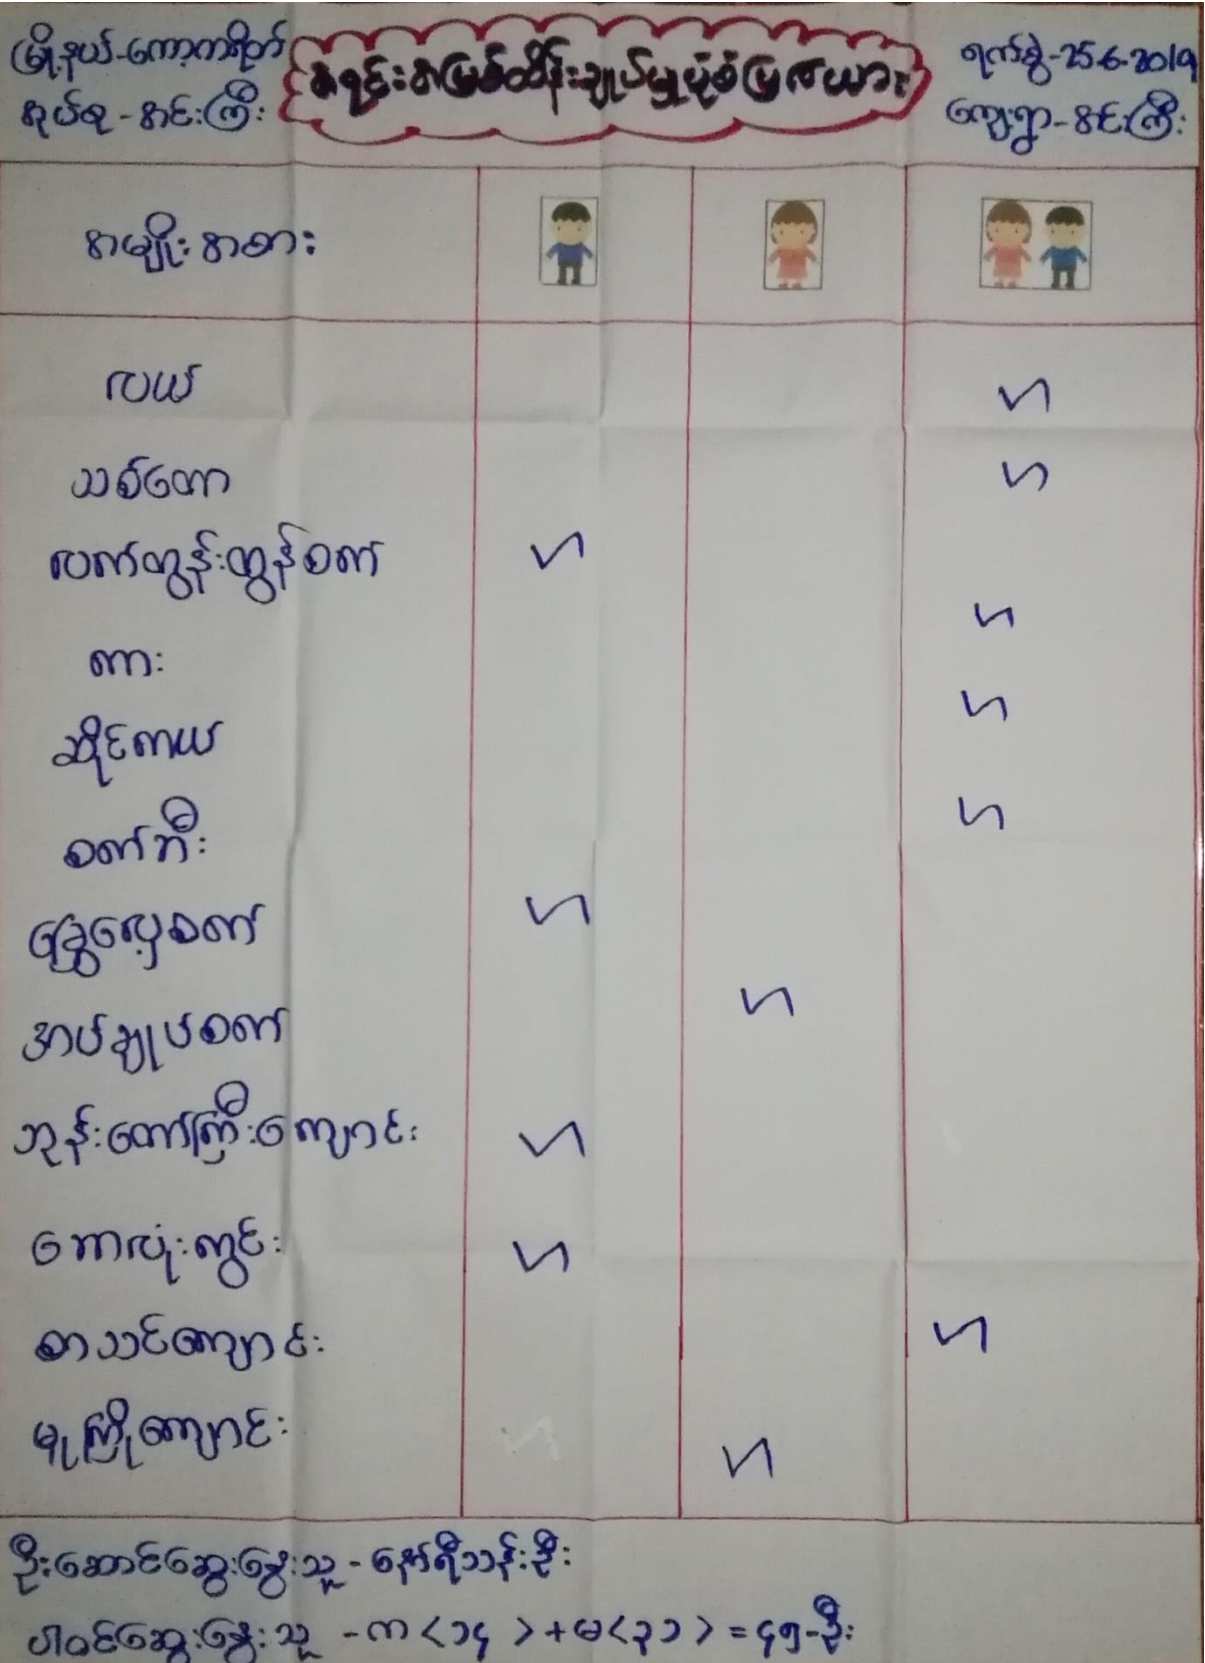 မြို့နယ်-ကော့ကရိတ်
အုပ်စု - အင်းကြီး
အရင်းအမြစ်ထိန်းချုပ်မှုပုံစံပြဇယား
ရက်စွဲ-25.6.2019
ကျေးရွာ-အင်းကြီး
အမျိုးအစား
လယ်
သစ်တော
လက်တွန်းထွန်စက်
ကား
ဆိုင်ကယ်
စက်ဘီး
ခြွေလှေ့စက်
အပ်ချုပ်စက်
ဘုန်းတော်ကြီးကျောင်း
ဘောလုံးကွင်း
စာသင်ကျောင်း
မူကြိုကျောင်း
ဦးဆောင်ဆွေးနွေးသူ - နော်ရီသန်းဦး
ပါဝင်ဆွေးနွေးသူ - က <၁၄ > + မ<၃၁> = ၄၅-ဦး